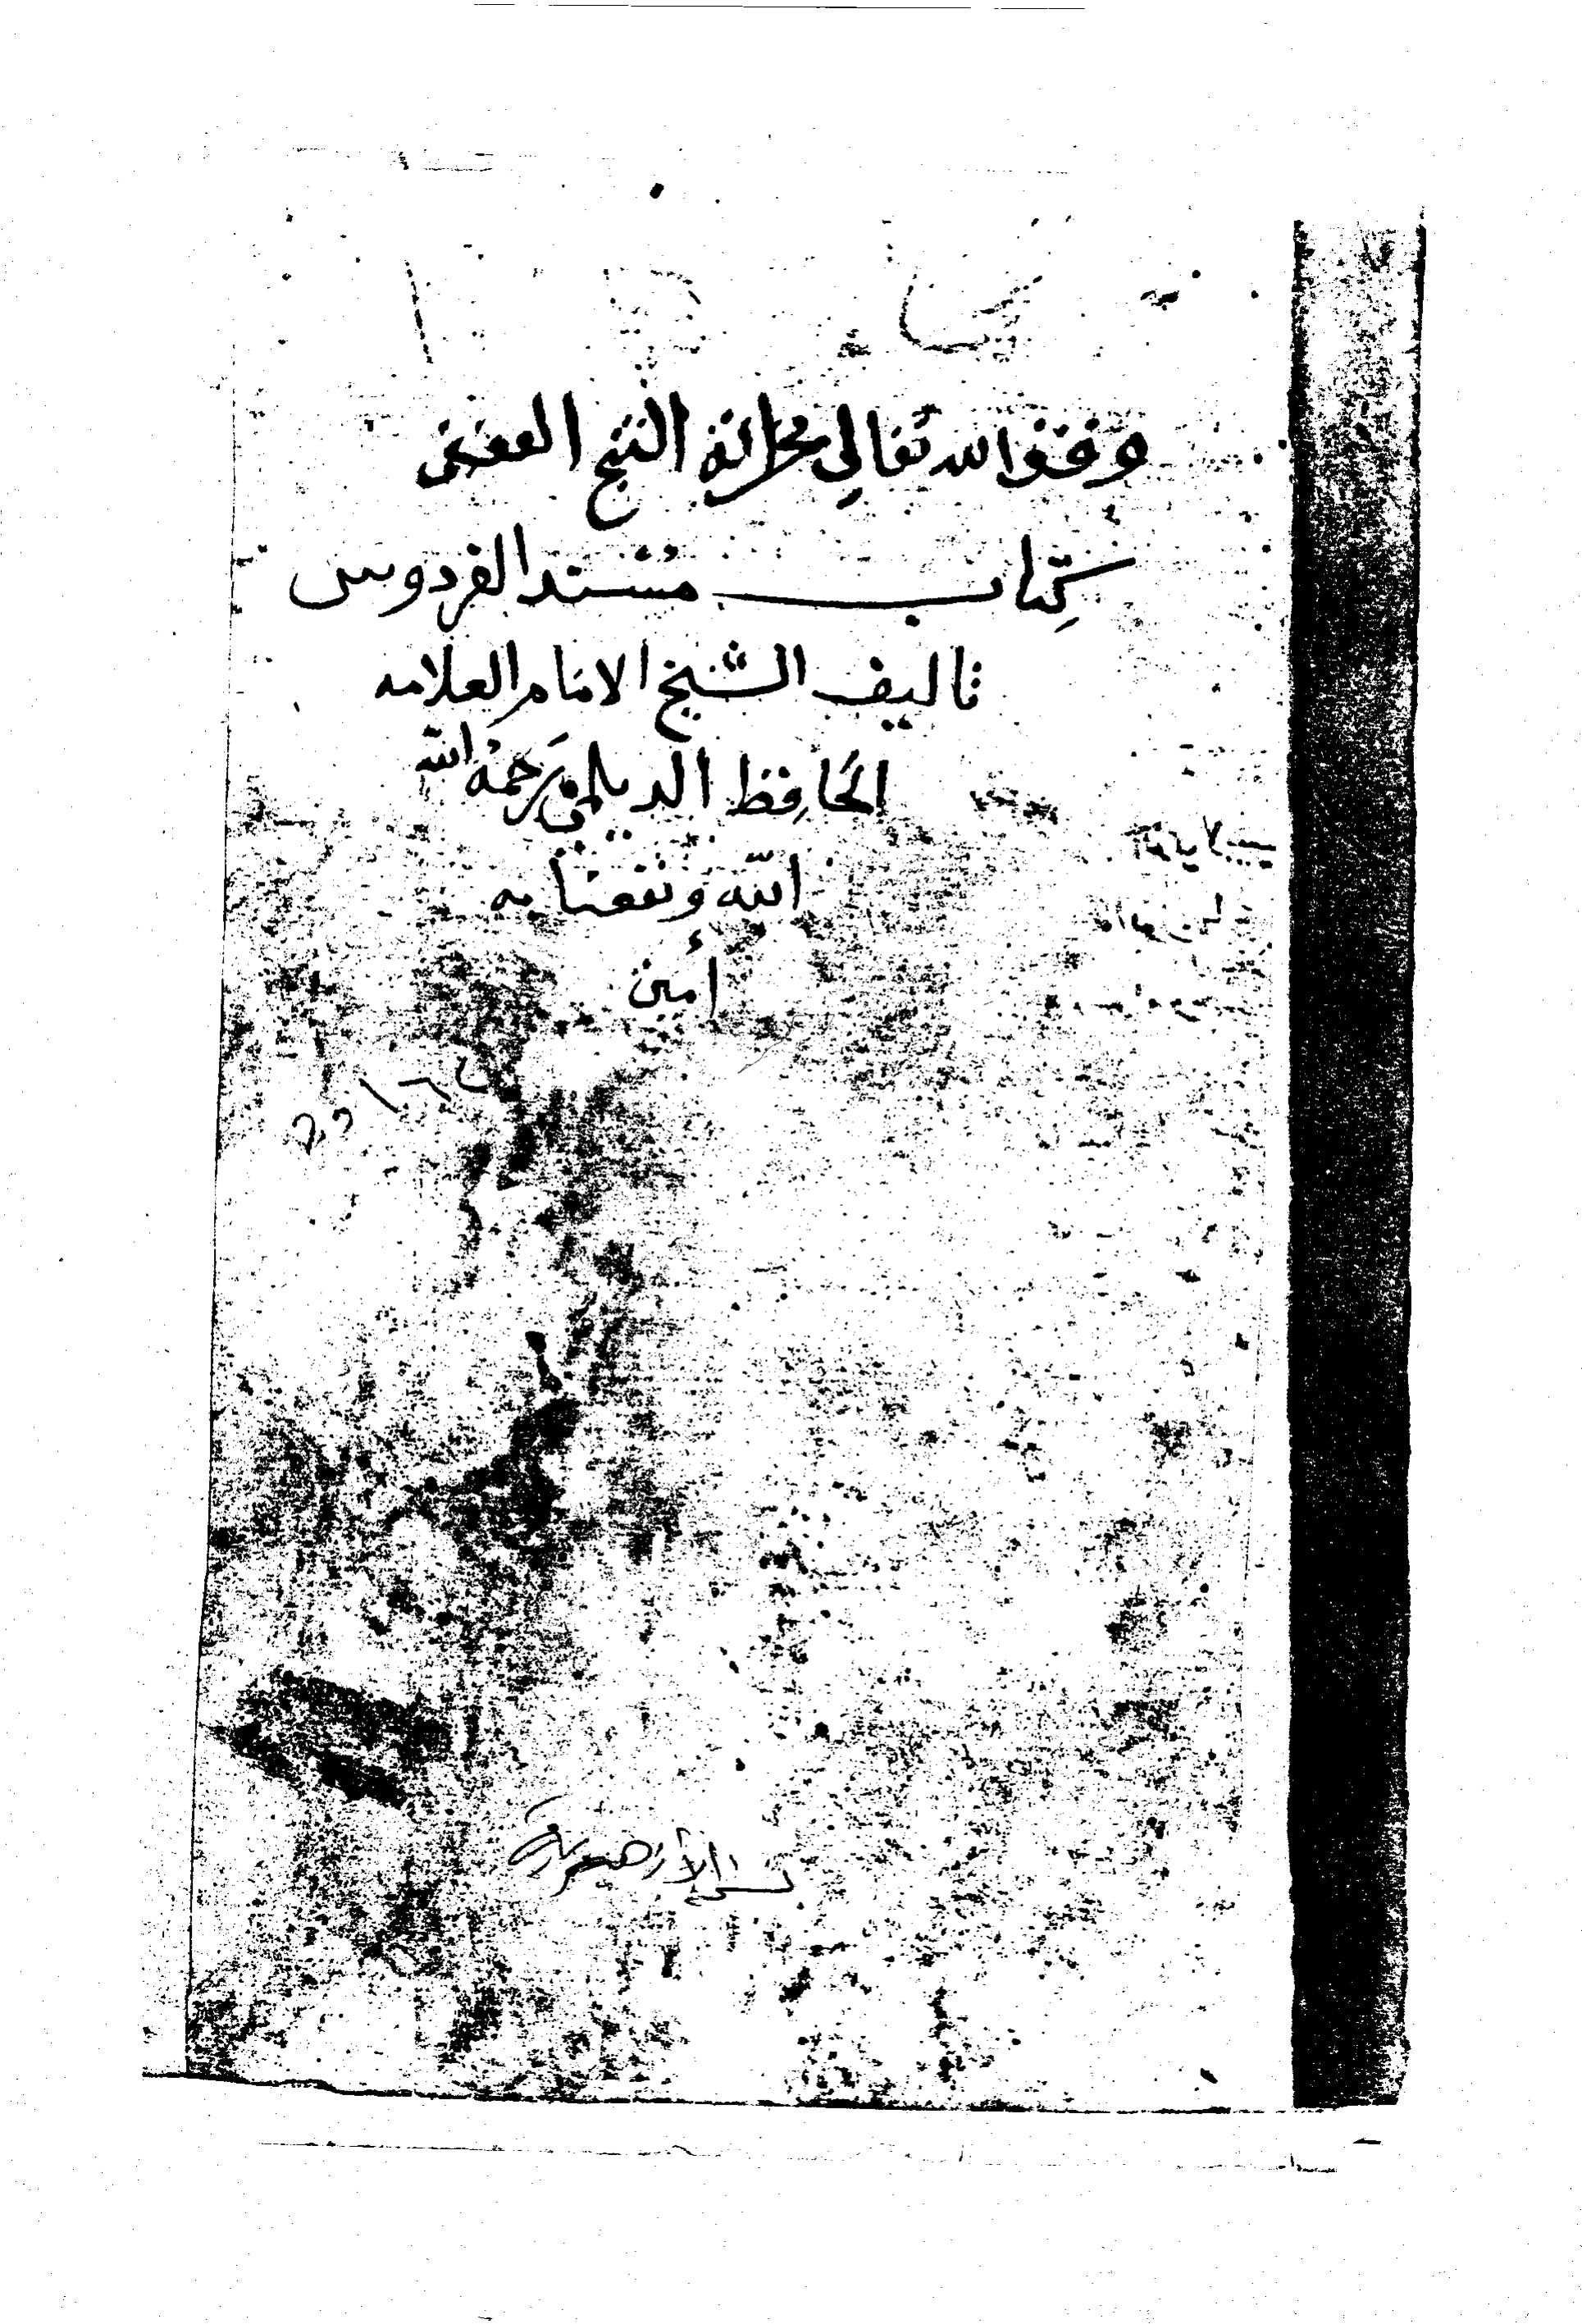 وقف لله تعالى بخزانة الشيخ العفيفي
كتاب مسند الفردوس
تاليف الشيخ الامام العلامه
الحافظ الديلمي رحمة الله
الله ونفعنا به
أمين
نسخة الأزهرية